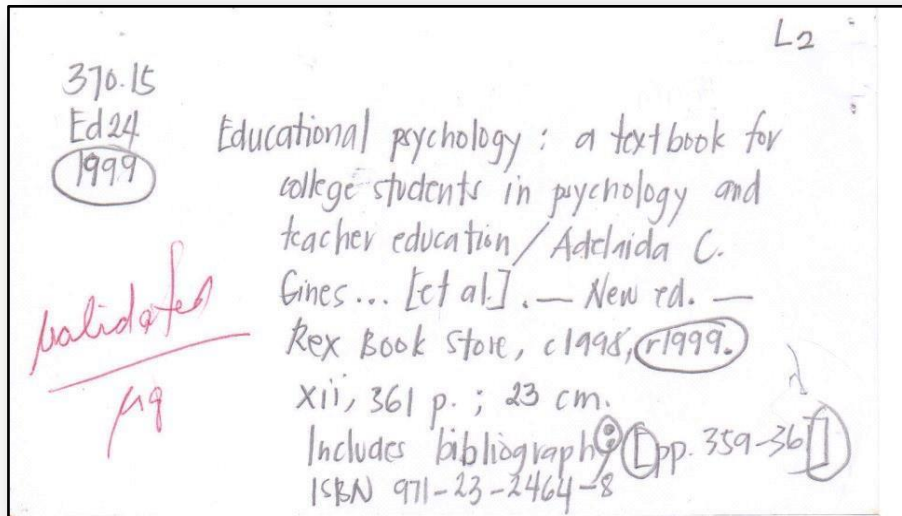 L2
370.15
Ed24
1999
Educational psychology : a textbook for
college students in psychology and
teacher education / Adelaida C.
Gines... [et al.]. — New ed. —
Rex Book Store, c1998, r1999.
xii, 361 p. ; 23 cm.
Includes bibliography : [pp. 359-36]
ISBN 971-23-2464-8
validated